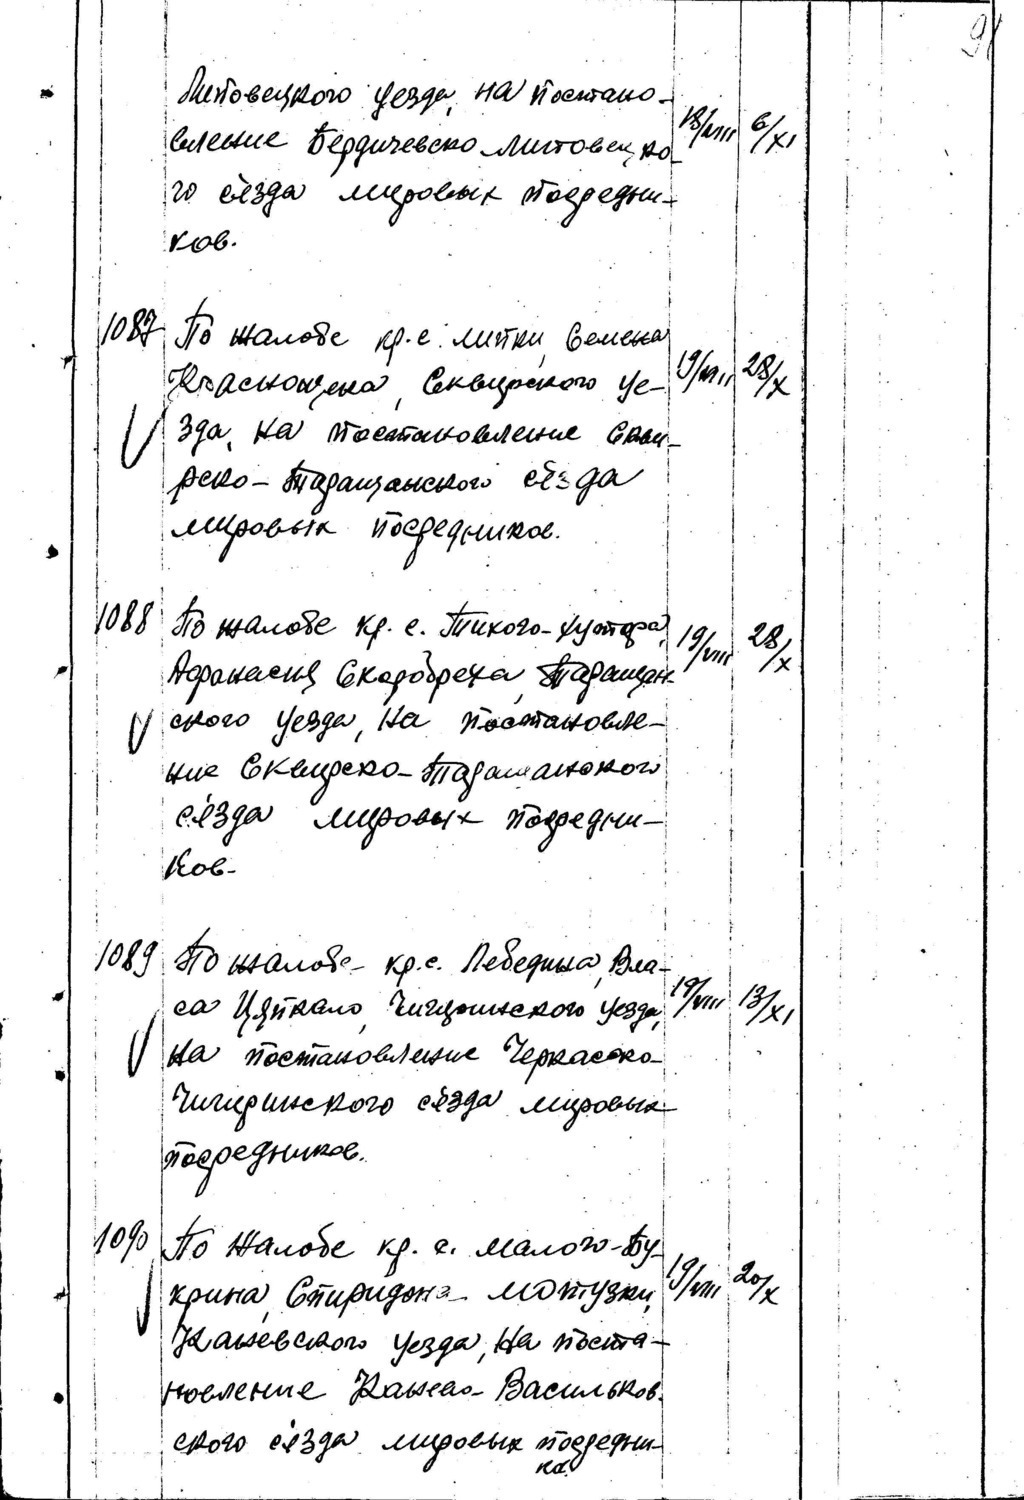 91
Липовецкого уезда, на постано-
вление Бердичевско-Липовецко-
го съезда мировых посредни-
ков.
18/VIII 6/XI
1087 По жалобе кр. с. Липки, Семена
Красножена, Сквирского уе-
зда, на постановлениеСкви-
рско-Таращанского съезда
мировых посредников.
19/VIII 28/X
1088 По жалобе кр. с. Тихого-Хутора,
Афанасия Скоробреха, Таращан-
ского уезда, на постановле-
ние Сквирско-Таращанского
съезда мировых посредни-
ков.
19/VIII 28/X
1089 По жалобе кр. с. Лебедина, Вла-
са Цяпкало, Чигиринского уезда,
на постановление Черкасско-
Чигиринского съезда мировых
посредников.
19/VIII 13/XI
1090 По жалобе кр. с. Малого-Бу-
крина, Спиридона Мотузки,
Каневского уезда, на поста-
новление Канево-Васильков-
ского съезда мировых посредни-
ка.
19/VIII 20/X